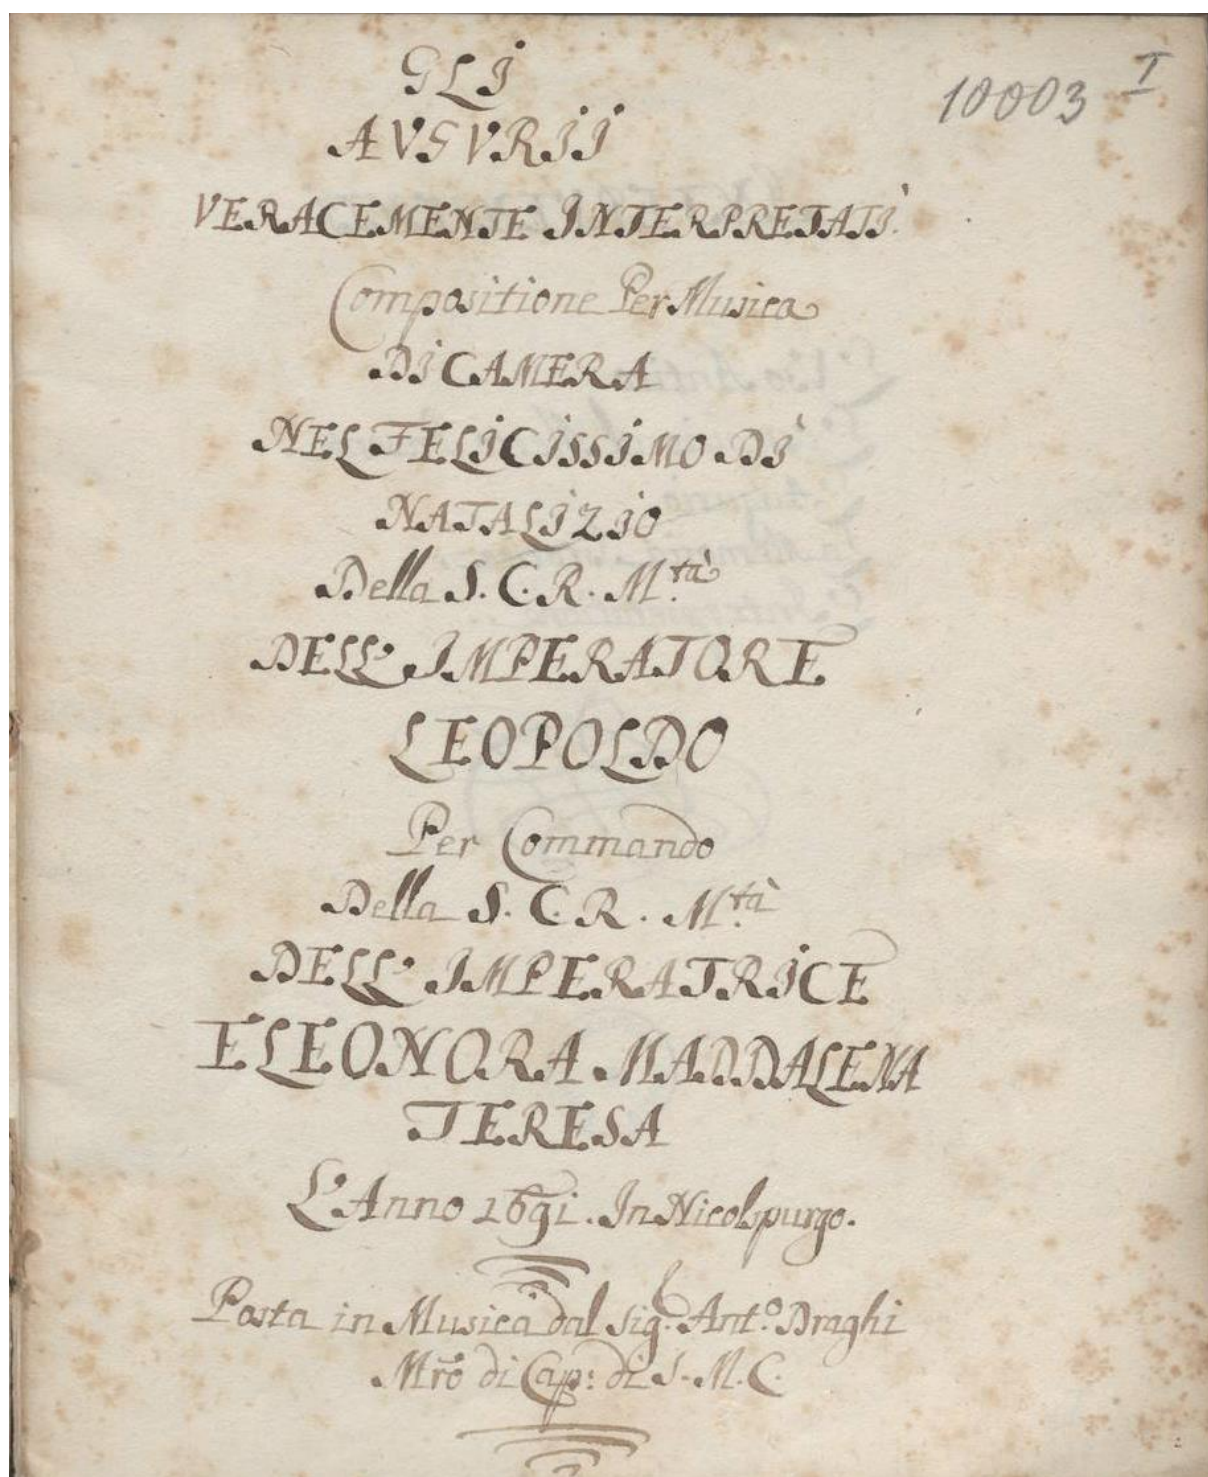 GLI
10003 I
AVGVRII
VERACEMENTE INTERPRETATI.
Compositione Per Musica
DI CAMERA
NEL FELICISSIMO DÌ
NATALIZIO
Della S. C. R. M.tà
DELL' IMPERATORE
LEOPOLDO
Per Commando
Della S. C. R. M.tà
DELL' IMPERATRICE
ELEONORA MADDALENA
TERESA
L'Anno 1691. In Nicolspurgo.
Posta in Musica dal Sig.r Ant.o Draghi
Mrō di Cap: di S. M. C.